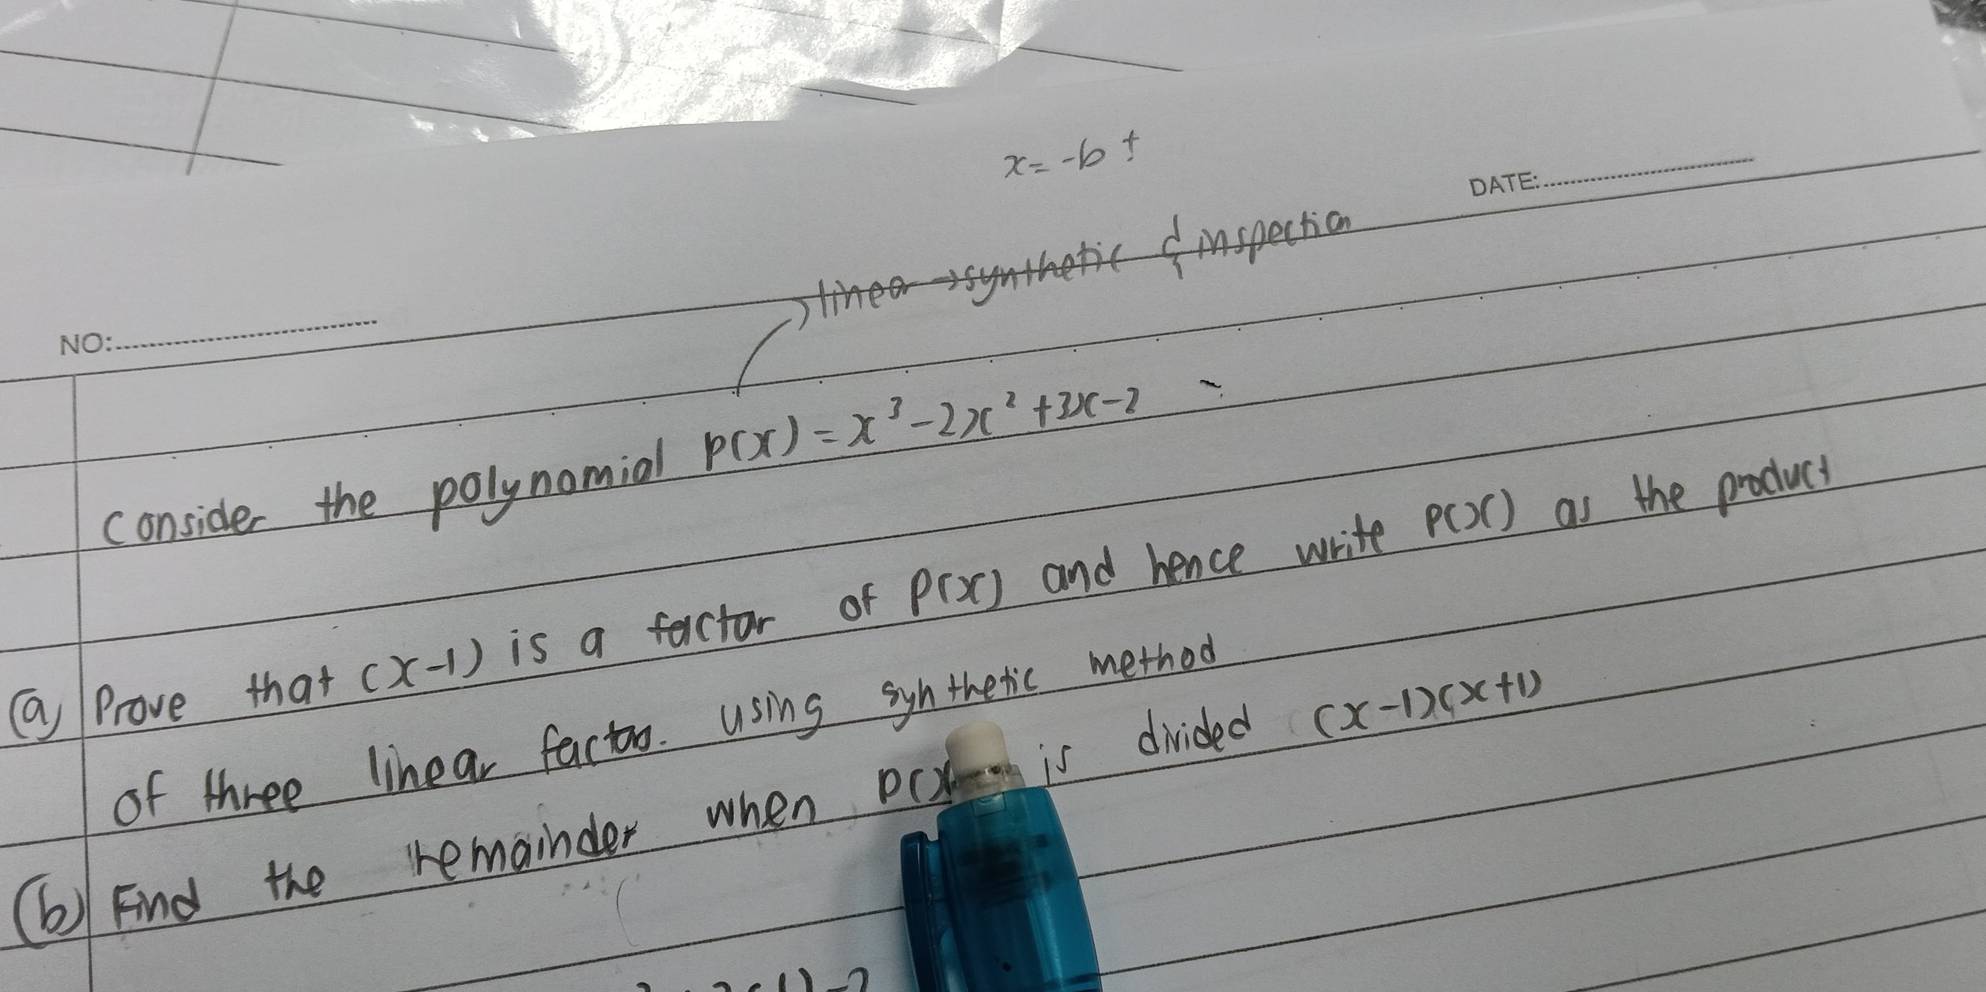 x= -b ±
DATE:
linear →synthetic & inspection
NO:
Consider the polynomial p(x) = x³ -2x² +3x-2
(a) Prove that (x-1) is a factor of P(x) and hence write P(x) as the product
of three linear factors. using synthetic method
(b) Find the remainder when P(x is divided (x-1)(x+1)